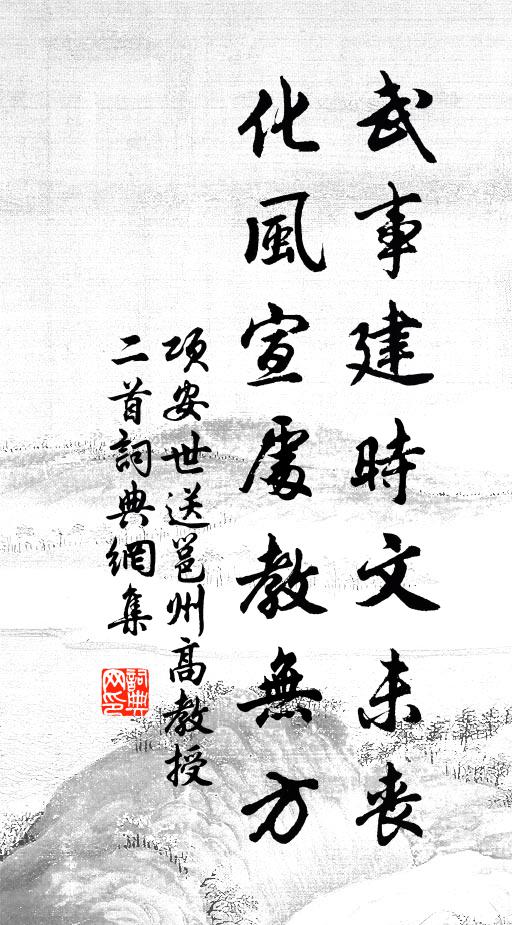 武事建時文未喪
化風宣處教無方
項安世送邕州高教授
二首詞典網集
詞典網印